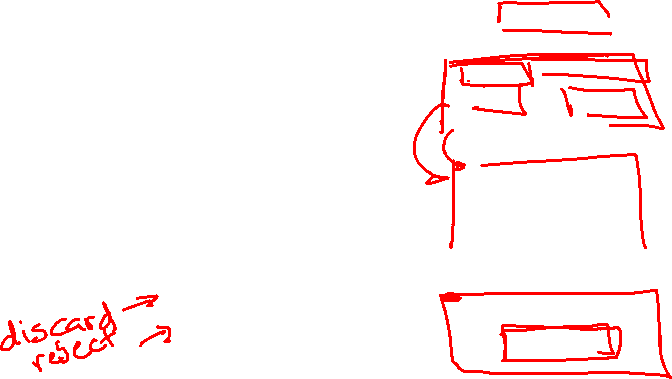 discard
reject